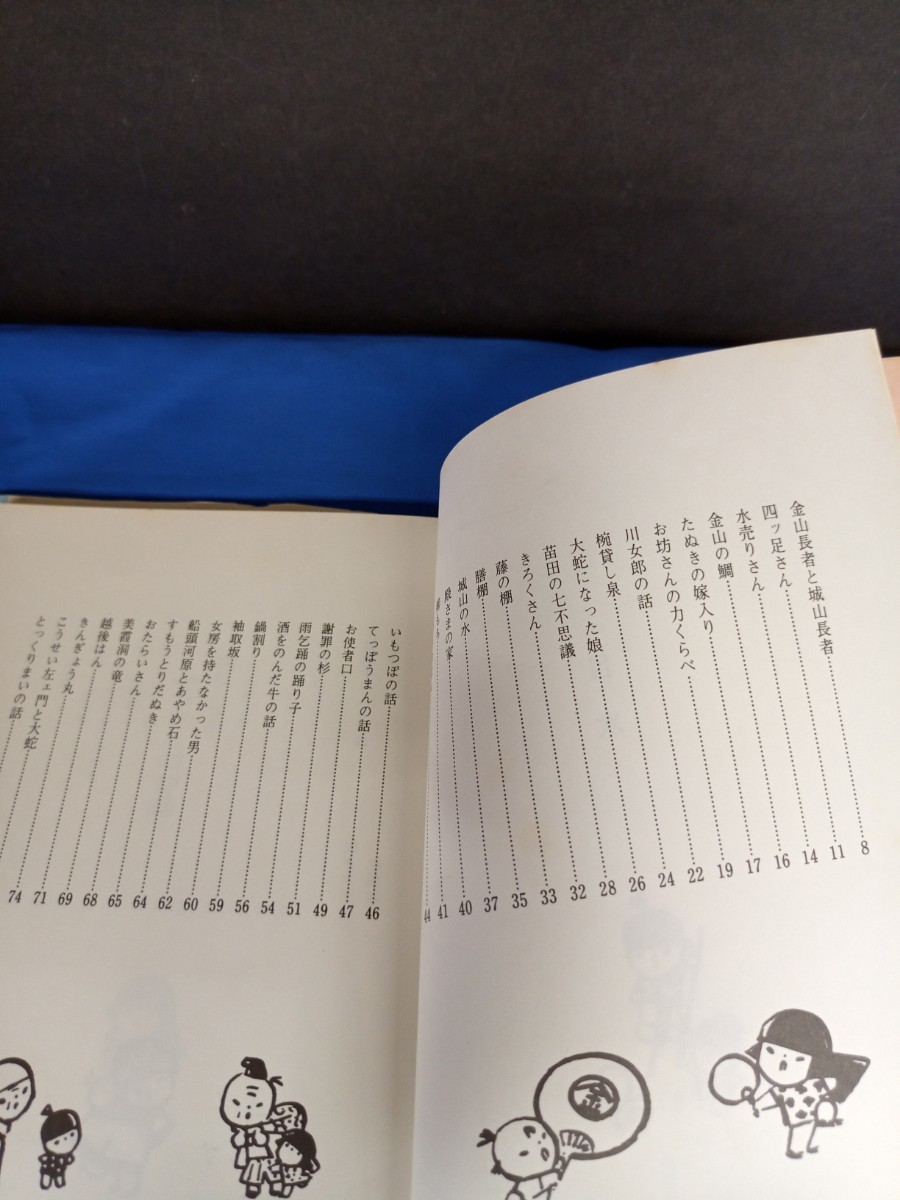 金山長者と城山長者
四ッ足さん
水売りさん
金山の鯛
たぬきの嫁入り
お坊さんの力くらべ
川女郎の話
椀貸し泉
大蛇になった娘
苗田の七不思議
きろくさん
藤の棚
膳棚
城山の水
殿さまの家
44 41 40 37 35 33 32 28 26 24 22 19 17 16 14 11 8
金
いもつぼの話
てっぽうまんの話
お使者口
謝罪の杉
雨乞踊の踊り子
酒をのんだ牛の話
鍋割り
袖取坂
女房を持たなかった男
船頭河原とあやめ石
すもうとりだぬき
おたらいさん
美霞洞の竜
越後はん
きんぎょう丸
こうせい左ェ門と大蛇
とっくりまいの話
74 71 69 68 65 64 62 60 59 56 54 51 49 47 46